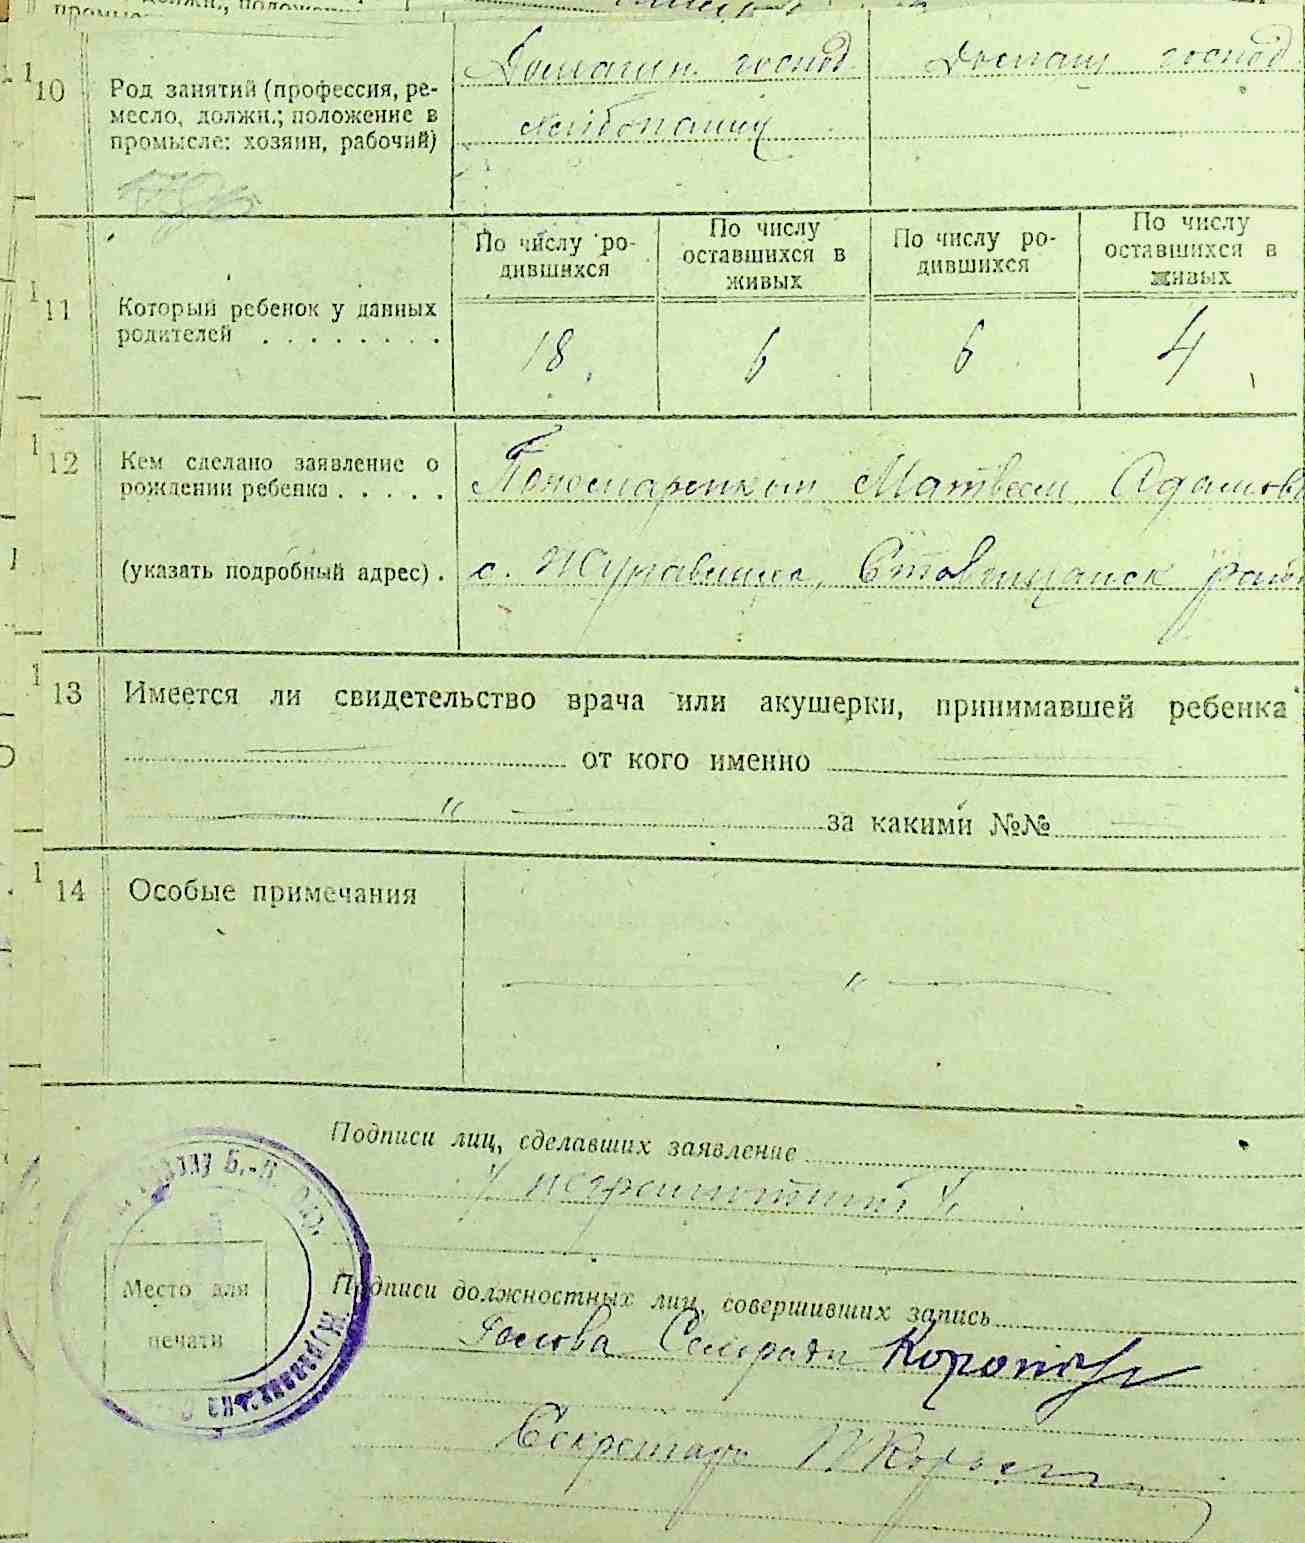 10 Род занятий (профессия, ре-
месло, должн.; положение в
промысле: хозяин, рабочий)
Домашн. господ.
Хлібопашец
Домашн господ.
По числу ро-
дившихся
По числу
оставшихся в
живых
По числу ро-
дившихся
По числу
оставшихся в
живых
11 Который ребенок у данных
родителей . . . . . . . .
18 6 6 4
12 Кем сделано заявление о
рождении ребенка . . . . .
Пономаренком Матвеем Адамов
(указать подробный адрес) .
с. Журавлиха, Ставищанск район
13 Имеется ли свидетельство врача или акушерки, принимавшей ребенка
от кого именно
" за какими №№
14 Особые примечания
"
Подписи лиц, сделавших заявление
/ неграмотний /
Место для
печати
Подписи должностных лиц, совершивших запись
Голова Сельради
Секретарь